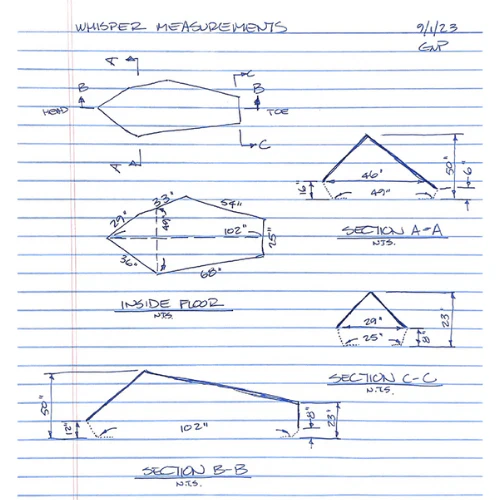 WHISPER MEASUREMENTS
9/1/23
GNP
A
C
B
B
HEAD
TOE
C
A
33"
29"
54"
49"
102"
25"
36"
68"
INSIDE FLOOR
N.T.S.
46"
49"
16"
50"
6"
SECTION A-A
N.T.S.
29"
25"
8"
23"
SECTION C-C
N.T.S.
50"
12"
102"
8"
23"
SECTION B-B
N.T.S.